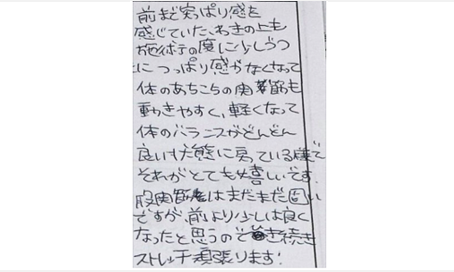 前まで突っぱり感を
感じていた、わきの上も
お施術の度に少しづつ
につっぱり感がなくなって
体のあちこちの肉節も
動きやすく、軽くなって
体のバランスがどんどん
良い状態に戻っている様で
それがとても嬉しいです。
股肉節はまだまだ固い
ですが、前より少しは良く
なったと思うので引き続き
ストレッチ頑張ります!